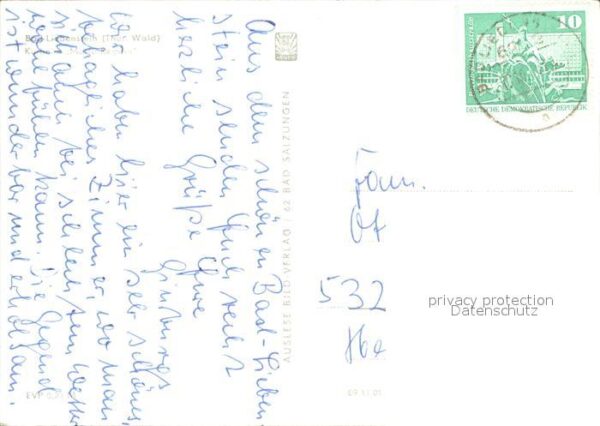 Bad Liebenstein (Thür. Wald)
Aus dem schönen Bad-Lieben
stein senden Euch recht
herzliche Grüße Eure
Wir haben hier ein sehr schönes,
behagliches Zimmer, wo man
sich auch bei schlechtem Wetter
wohlfühlen kann. Die Gegend
ist wunderbar und erholsam.
AUSLESE BILD VERLAG / 62 BAD SALZUNGEN
EVP
09 11 01
10
DEUTSCHE DEMOKRATISCHE REPUBLIK
Fam.
532
privacy protection
Datenschutz